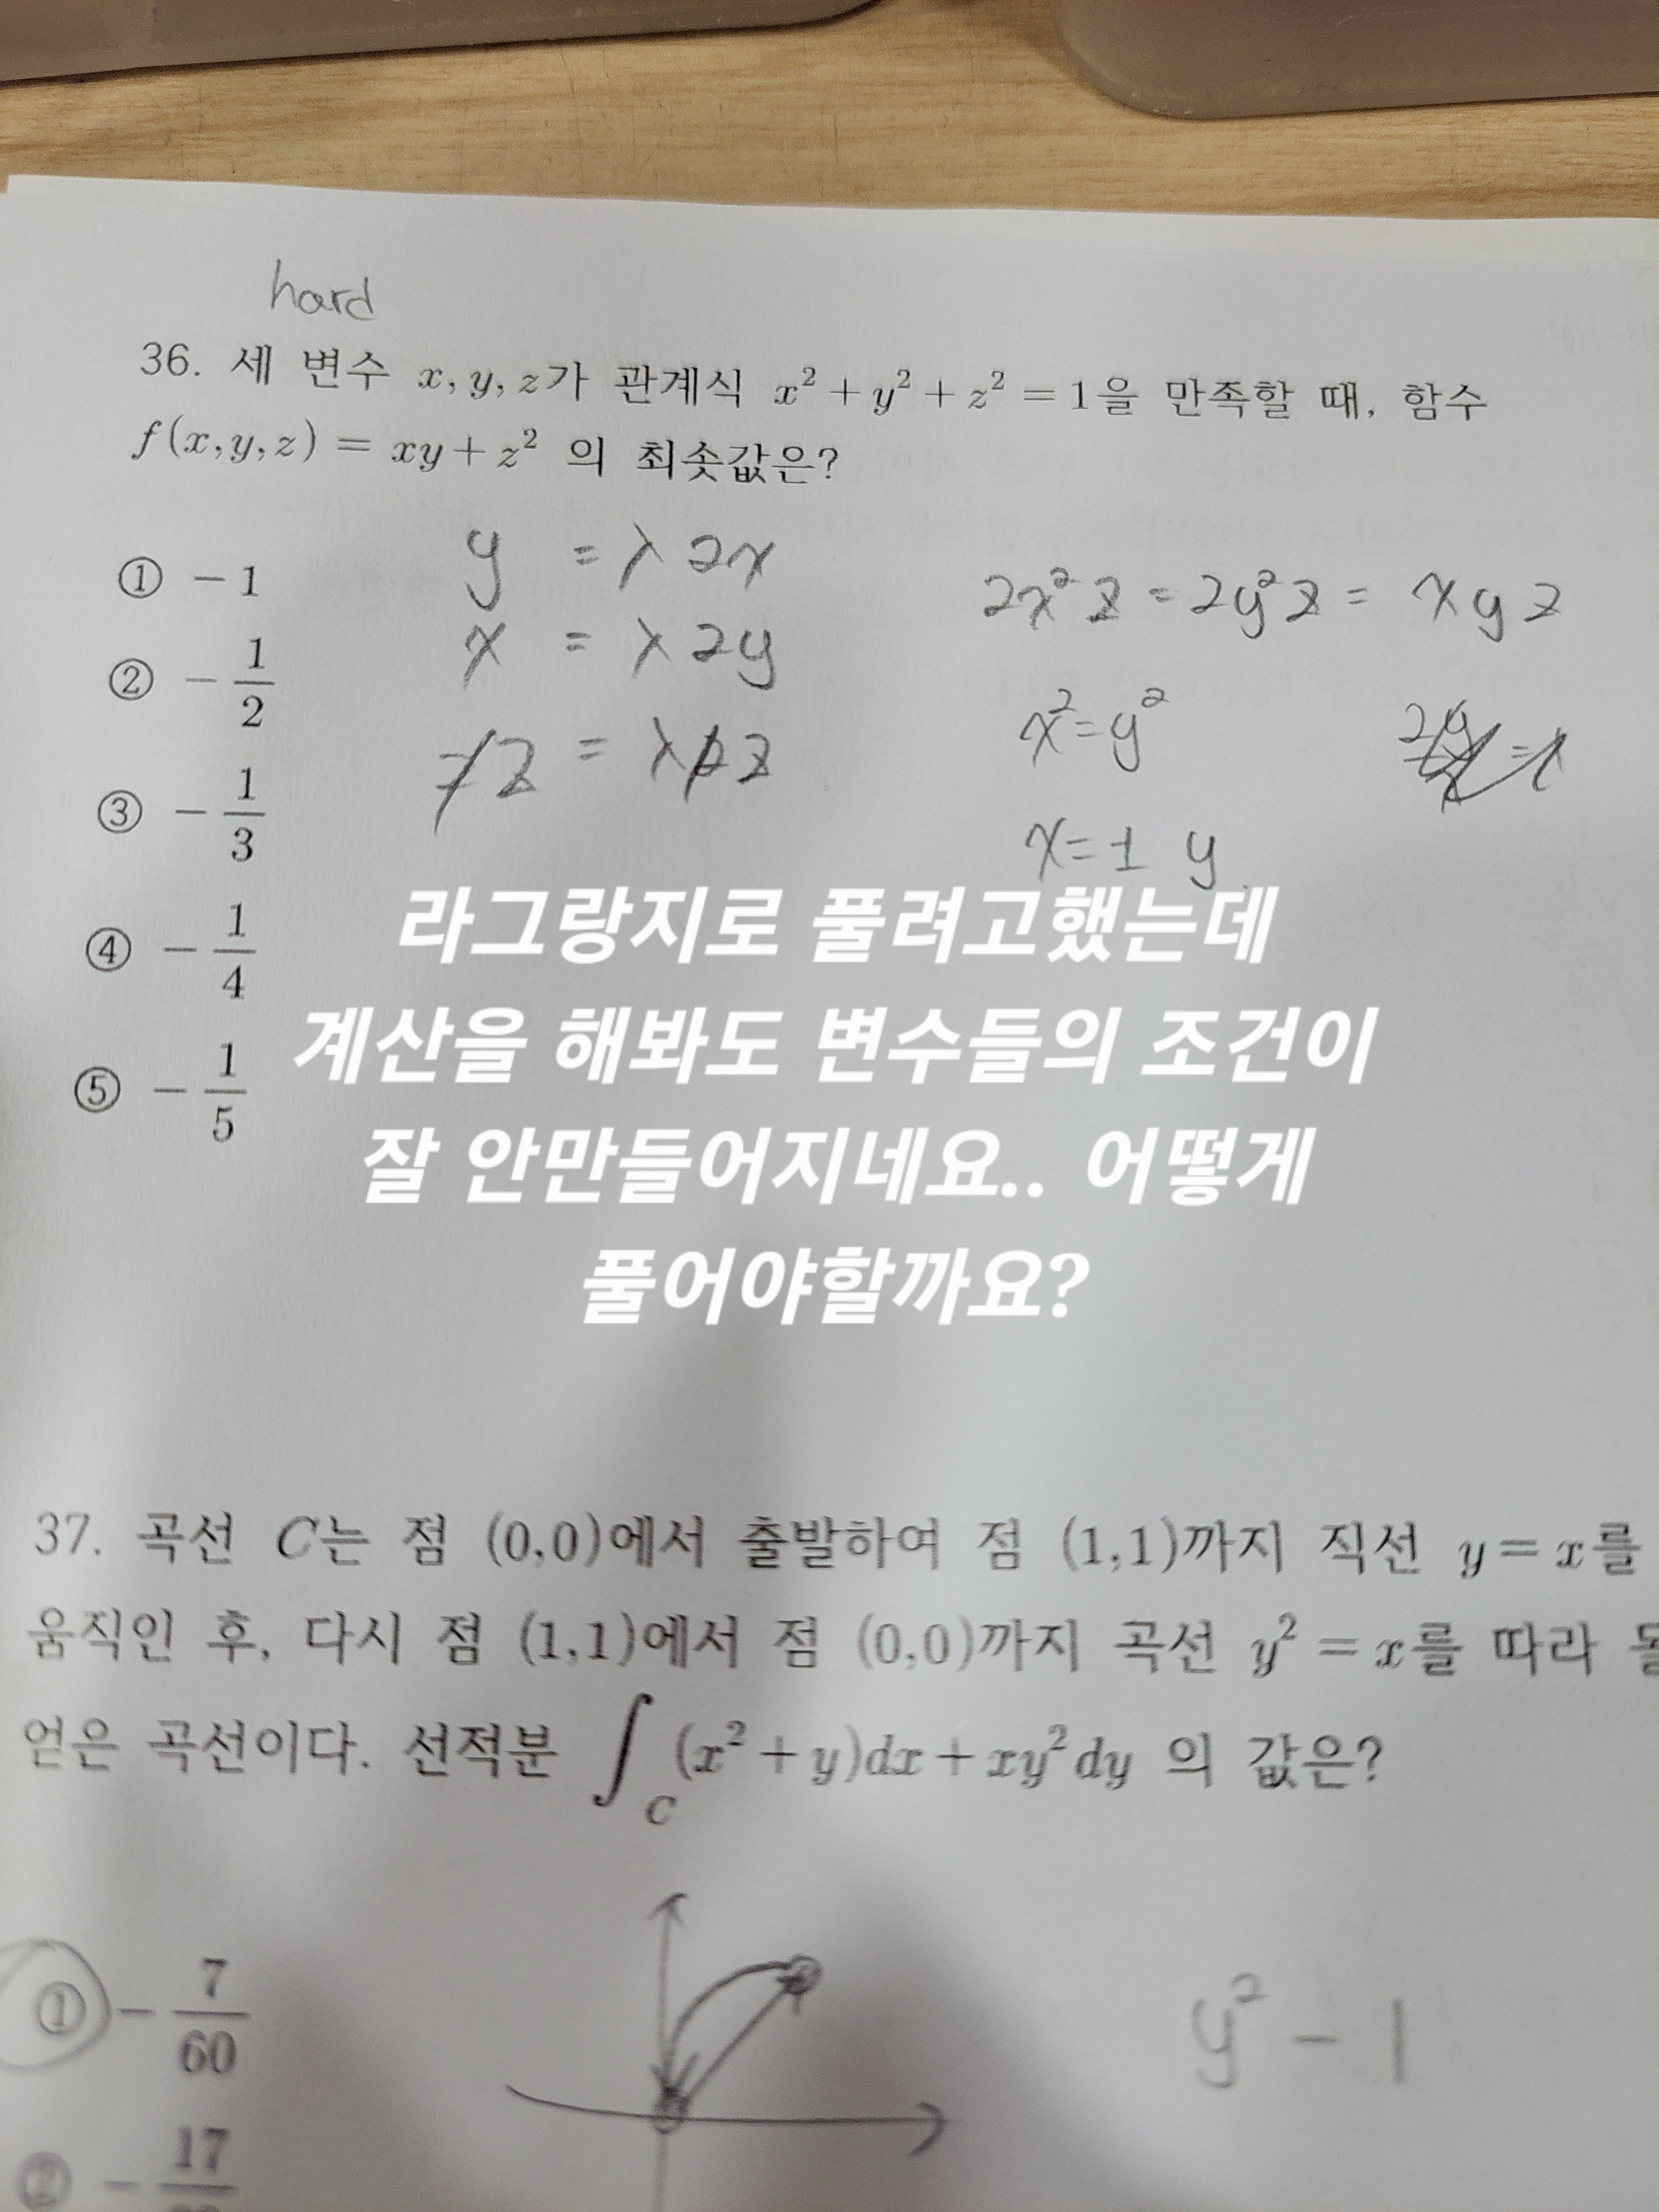 hard
36. 세 변수 x, y, z가 관계식 x² + y² + z² = 1을 만족할 때, 함수
f(x,y,z) = xy + z² 의 최솟값은?
① -1
② -1/2
③ -1/3
④ -1/4
⑤ -1/5
y = λ2x
x = λ2y
2z = λ2z
2x²z = 2y²z = xyz
x² = y²
x = ± y
라그랑지로 풀려고했는데
계산을 해봐도 변수들의 조건이
잘 안만들어지네요.. 어떻게
풀어야할까요?
37. 곡선 C는 점 (0,0)에서 출발하여 점 (1,1)까지 직선 y = x를
움직인 후, 다시 점 (1,1)에서 점 (0,0)까지 곡선 y² = x를 따라
얻은 곡선이다. 선적분 ∫_C (x² + y)dx + xy²dy 의 값은?
① -7/60
y² - 1
② - 17